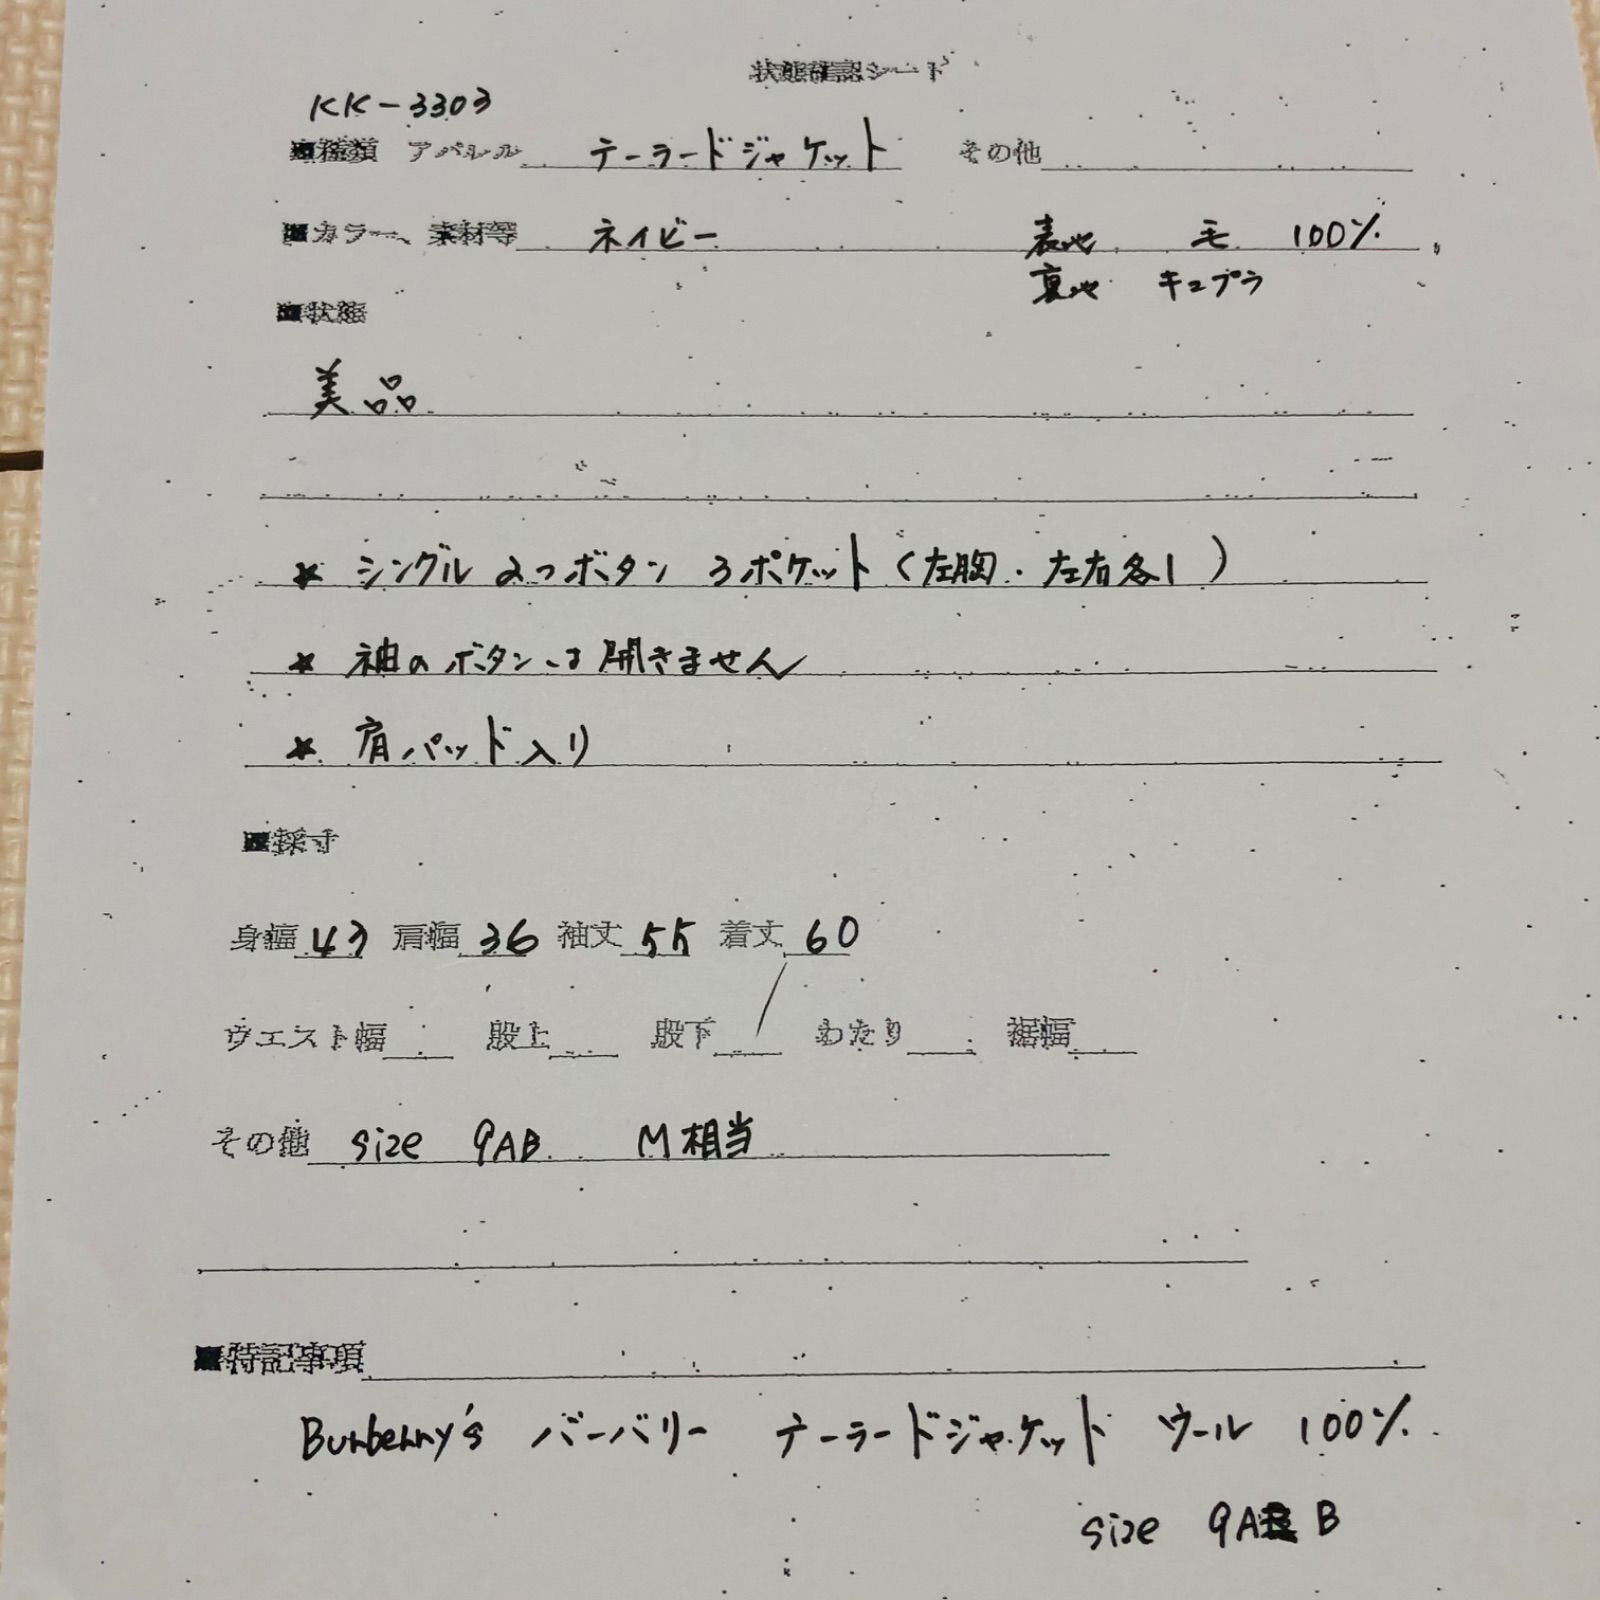 状態確認シート
KK-3303
■種類 アパレル テーラードジャケット その他
■カラー、素材等 ネイビー 表地 毛 100%
裏地 キュプラ
■状態
美品
* シングル 2つボタン 3ポケット(左胸・左右各1)
* 袖のボタンは開きません
* 肩パッド入り
■採寸
身幅 43 肩幅 36 袖丈 55 着丈 60
ウエスト幅 股上 股下 わたり 裾幅
その他 size 9AB M相当
■特記事項
Burberry's バーバリー テーラードジャケット ウール 100%
size 9AB